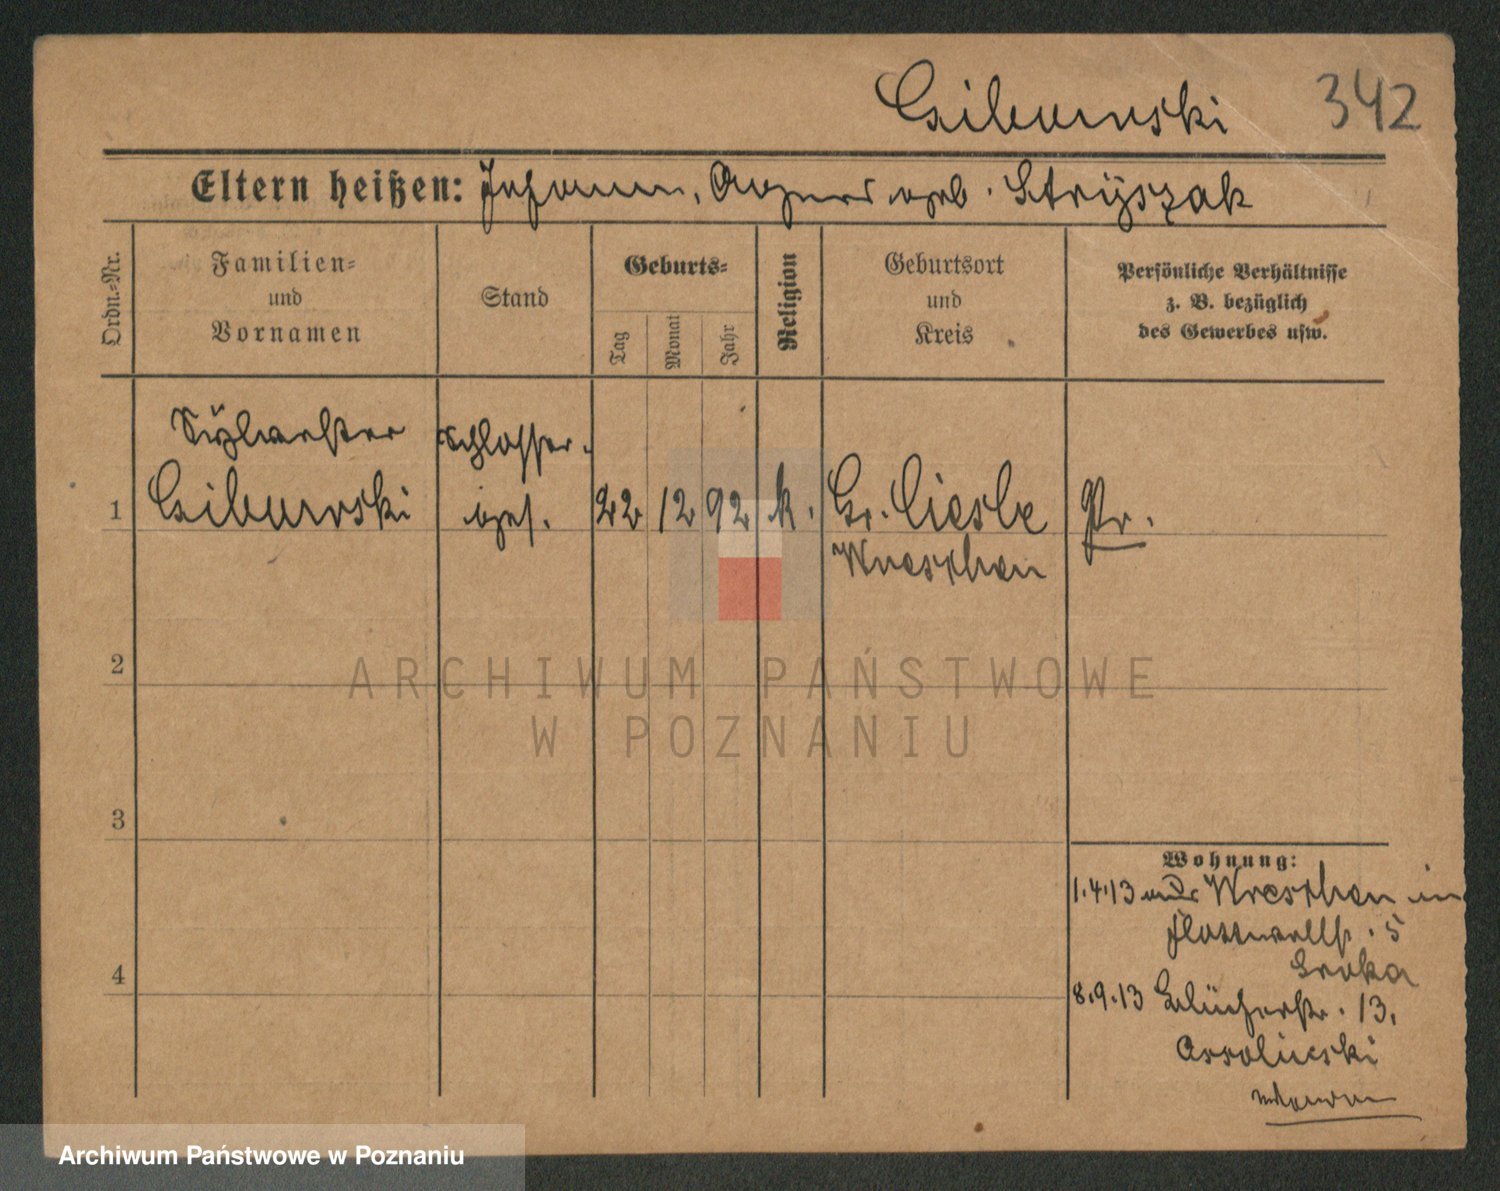 Cibowski 342
Eltern heißen: Johann, Agnes geb. Stryszak
Ordn.=Nr.
Familien=
und
Vornamen
Stand
Geburts=
Tag
Monat
Jahr
Religion
Geburtsort
und
Kreis
Persönliche Verhältnisse
z. B. bezüglich
des Gewerbes usw.
Sylwester Schlosser-
1 Cibowski ges. 22 12 92 k. Gr. Pr.
Wreschen
2
ARCHIWUM PAŃSTWOWE
W POZNANIU
3
Wohnung:
1.4.13 aus Wreschen in
Flottwellstr. 5
Sroka
4
8.9.13 Blücherstr. 13,
Ossolinski
Archiwum Państwowe w Poznaniu